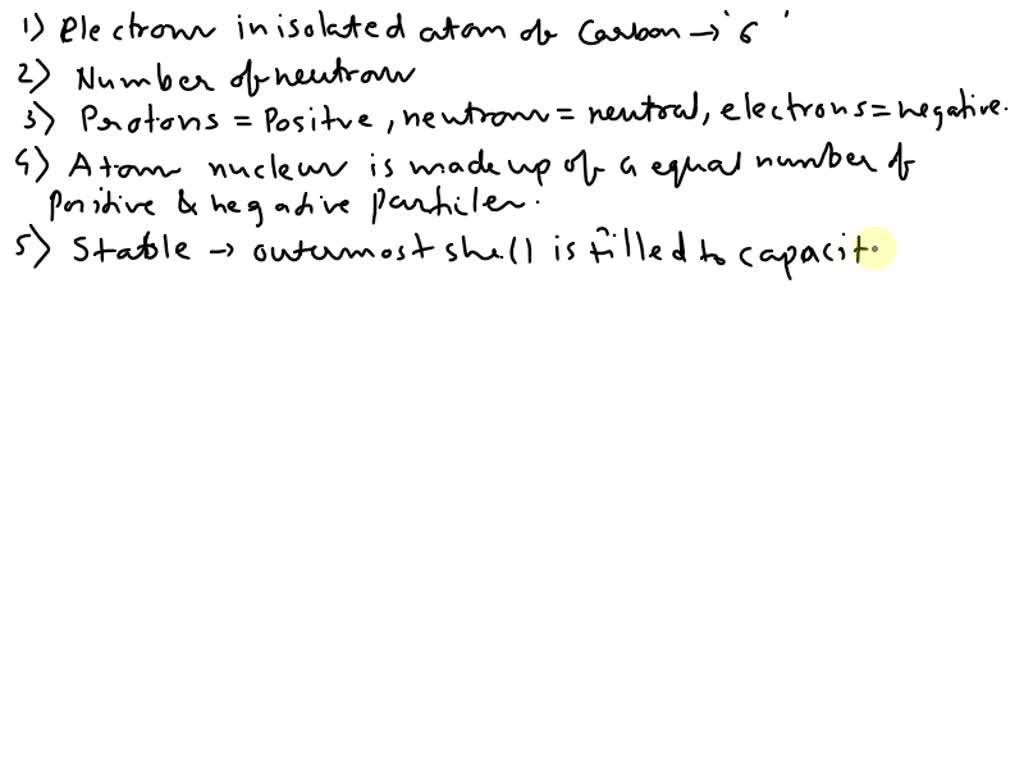 1) Electrons in isolated atom of Carbon → '6'
2) Number of neutrons
3) Protons = Positve, neutrons = neutral, electrons = negative.
4) Atoms nucleus is made up of a equal number of
Positive & negative particles.
5) Stable → outermost shell is filled to capacit